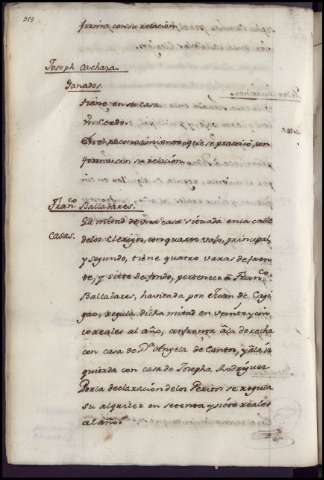 firma con su relacion.
Joseph Cachaza
Ganados.
tiene en su casa
Un Cerdo.
Del reconocimiento que se practicó, con
forma con su relacion.
Franco. Balladares.
Casas.
La mitad de una casa situada en la calle
de los Clerigos, con quarto vajo, principal,
y segundo, tiene quatro varas de fren
te, y siete de fondo, pertenece a Franco.
Balladares, havitada por Juan de
regula dicha mitad en veinte y cin
co reales al año, confronta a la derecha
con casa de Da. Angela de Castro, y a la iz
quierda con casa de Josepha Rodriguez
Por la declaracion de los Peritos se regula
su alquiler en setenta y siete reales
al año.